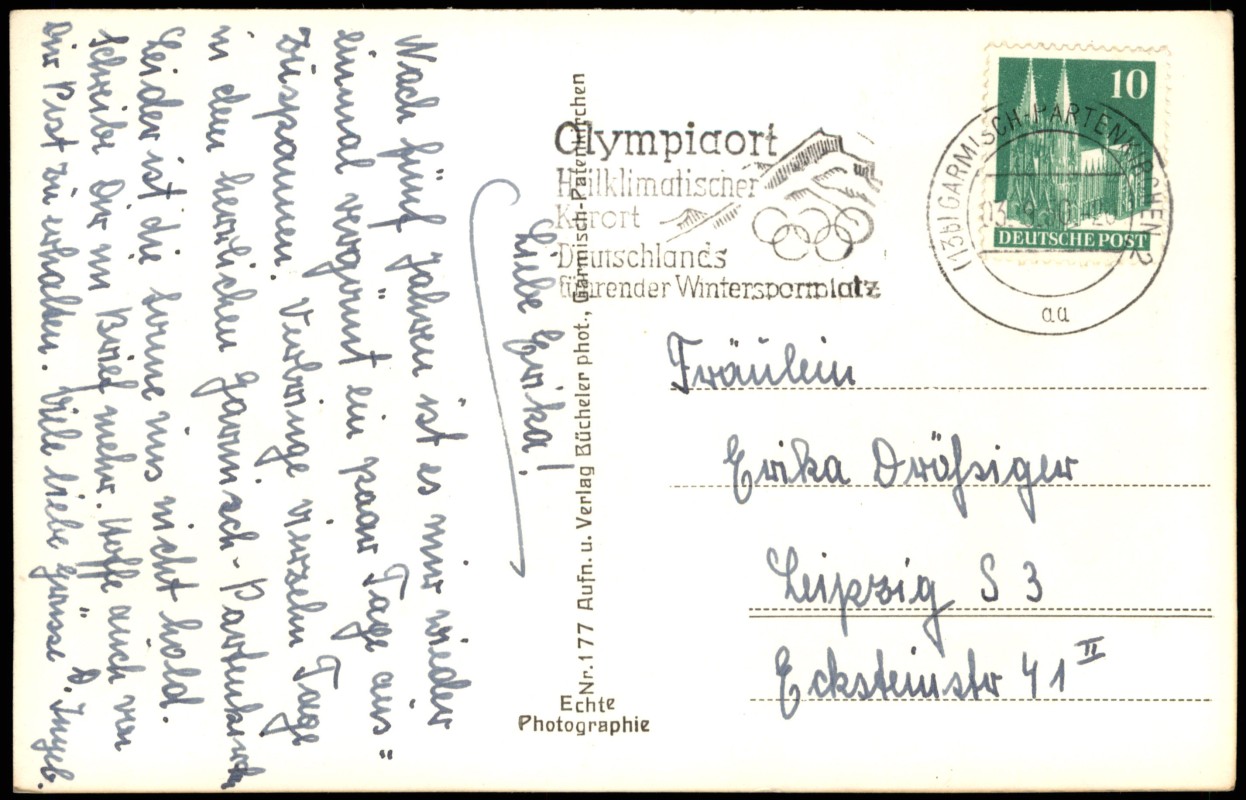 Liebe Erika!
Nach fünf Jahren ist es mir wieder
einmal vergönnt ein paar Tage aus"
zuspannen. Verbringe vierzehn Tage
in dem herrlichen Garmisch-Partenkirchen
Leider ist die Sonne uns nicht hold.
Schreibe Dir im Brief mehr. Hoffe auch von
Dir Post zu erhalten. Viele liebe Grüsse D. Ingeb.
Nr. 177 Aufn. u. Verlag Bücheler phot., Garmisch-Patenkirchen
Echte
Photographie
Olympiaort
Heilklimatischer
Kurort
Deutschlands
führender Wintersportplatz
(13b) GARMISCH-PARTENKIRCHEN 2
au
10
DEUTSCHE POST
Fräulein
Erika Dräßiger
Leipzig S 3
Ecksteinstr 41 II